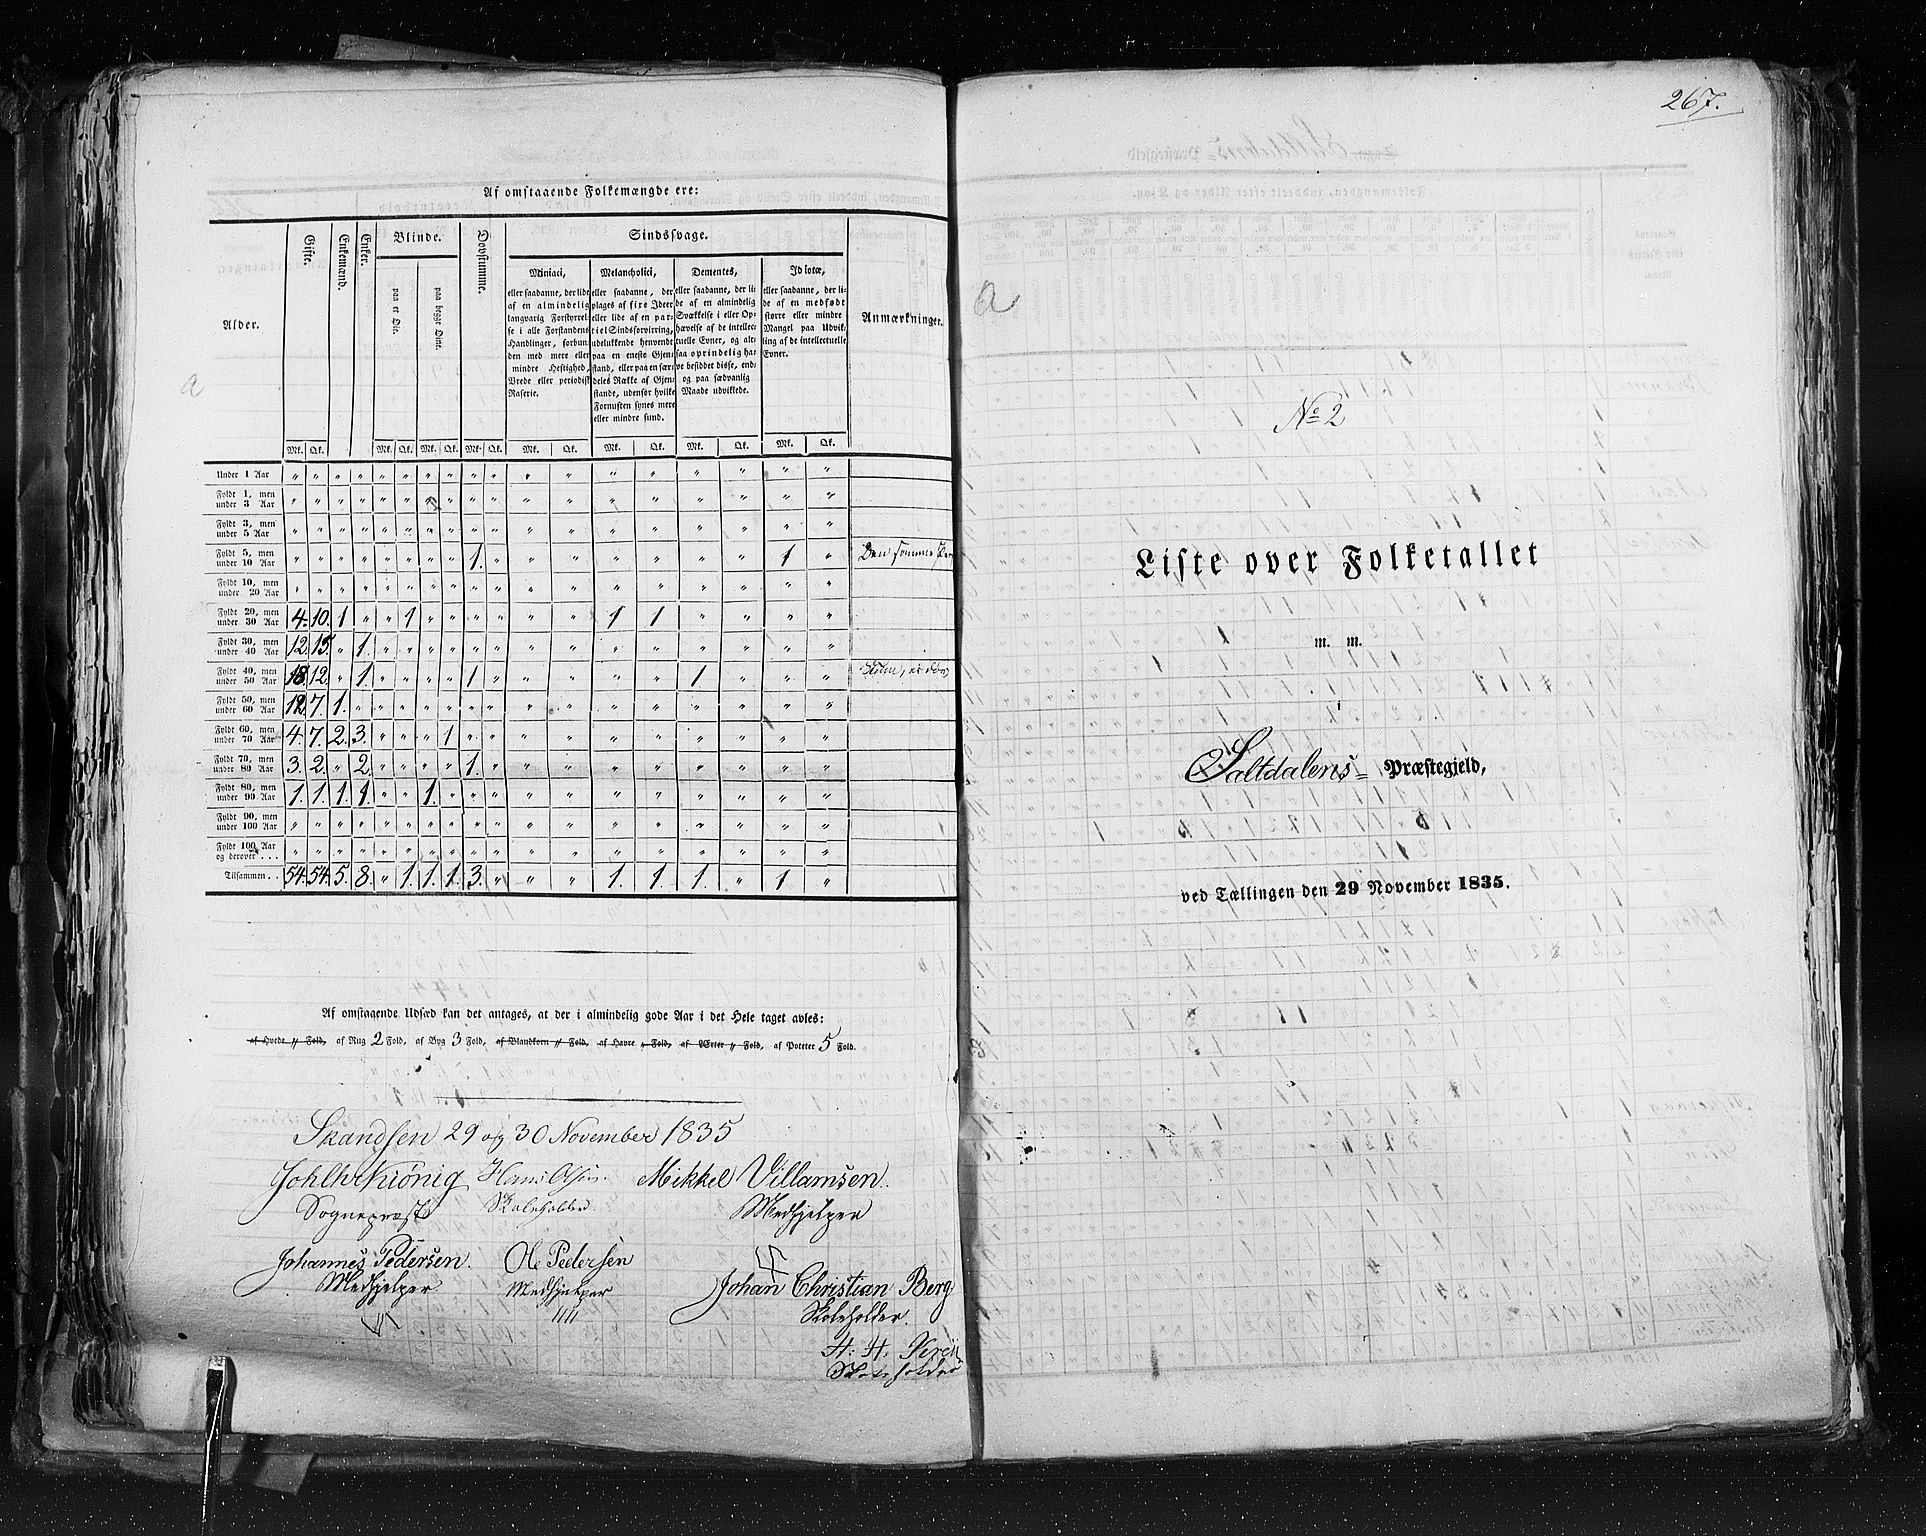 Af omstaaende Folkemængde ere:
Alder. Gifte. Enkemænd. Enker. Blinde. Døvstumme. Sindssvage. Anmærkninger.
paa et Øie. paa begge Øine.
Maniaci,
eller saadanne, der lide
af en almindelig
langvarig Forstyrrel-
se i alle Forstandens
Handlinger, forbun-
den med mere eller
mindre Heftighed,
Vrede eller periodisk
Raserie.
Melancholici,
eller saadanne, der
plages af fixe Ideer
eller lide af en par-
tiel Sindsforvirring,
udelukkende henvendt
paa en eneste Gjen-
stand, eller paa en sær-
deles Række af Gjen-
stande, udenfor hvilke
Fornuften synes mere
eller mindre sund.
Dementes,
eller saadanne, der li-
de af en almindelig
Svækkelse i eller Op-
hævelse af de intellec-
tuelle Evner, og alt-
saa oprindelig ha-
ve besiddet disse, end-
og paa sædvanlig
Maade udviklede.
Idiotæ,
eller saadanne, der li-
de af en medfødt
større eller mindre
Mangel paa Udvik-
ling af de intellectuelle
Evner.
Mk. Qk. Mk. Qk. Mk. Qk. Mk. Qk. Mk. Qk. Mk. Qk. Mk. Qk. Mk. Qk.
Under 1 Aar " " " " " " " " " " " " " " " " " "
Fyldt 1, men under 3 Aar " " " " " " " " " " " " " " " " " "
Fyldt 3, men under 5 Aar " " " " " " " " " " " " " " " " " "
Fyldt 5, men under 10 Aar " " " " " " " " 1. " " " " " " " 1 " Den samme
Fyldt 10, men under 20 Aar " " " " " " " " " " " " " " " " " "
Fyldt 20, men under 30 Aar 4. 10. 1 " " 1 " " " " " " 1 1 " " " "
Fyldt 30, men under 40 Aar 12. 15. " 1. " " " " " " " " " " " " " "
Fyldt 40, men under 50 Aar 18. 12. " 1. " " " " 1 " " " " " 1 " " "
Fyldt 50, men under 60 Aar 12. 7. 1. " " " " " " " " " " " " " " "
Fyldt 60, men under 70 Aar 4. 7. 2. 3. " " " 1 " " " " " " " " " "
Fyldt 70, men under 80 Aar 3. 2. " 2. " " " " 1. " " " " " " " " "
Fyldt 80, men under 90 Aar 1. 1. 1. 1. " " 1. " " " " " " " " " " "
Fyldt 90, men under 100 Aar " " " " " " " " " " " " " " " " " "
Fyldt 100 Aar og derover . . . " " " " " " " " " " " " " " " " " "
Tilsammen . . 54. 54. 5. 8. " 1. 1. 1. 3. " " " 1. 1. 1. " 1 "
Af omstaaende Udsæd kan det antages, at der i almindelig gode Aar i det Hele taget avles:
af Hvede " Fold, af Rug 2 Fold, af Byg 3 Fold, af Blandkorn " Fold, af Havre " Fold, af Ærter " Fold, af Poteter 5 Fold.
Skandsen 29 og 30 November 1835
Hans Olsen Mikkel Villamsen.
Sognepræst Skoleholder Medhjelper
Johannes Pedersen. Ole Pedersen
Medhjelper Medhjelper
Johan Christian Berg
Skoleholder.
H. H.
Skoleholder
a
267.
a
No 2
Liste over Folketallet
m. m.
i
Saltdalens Præstegjeld,
ved Tællingen den 29 November 1835.